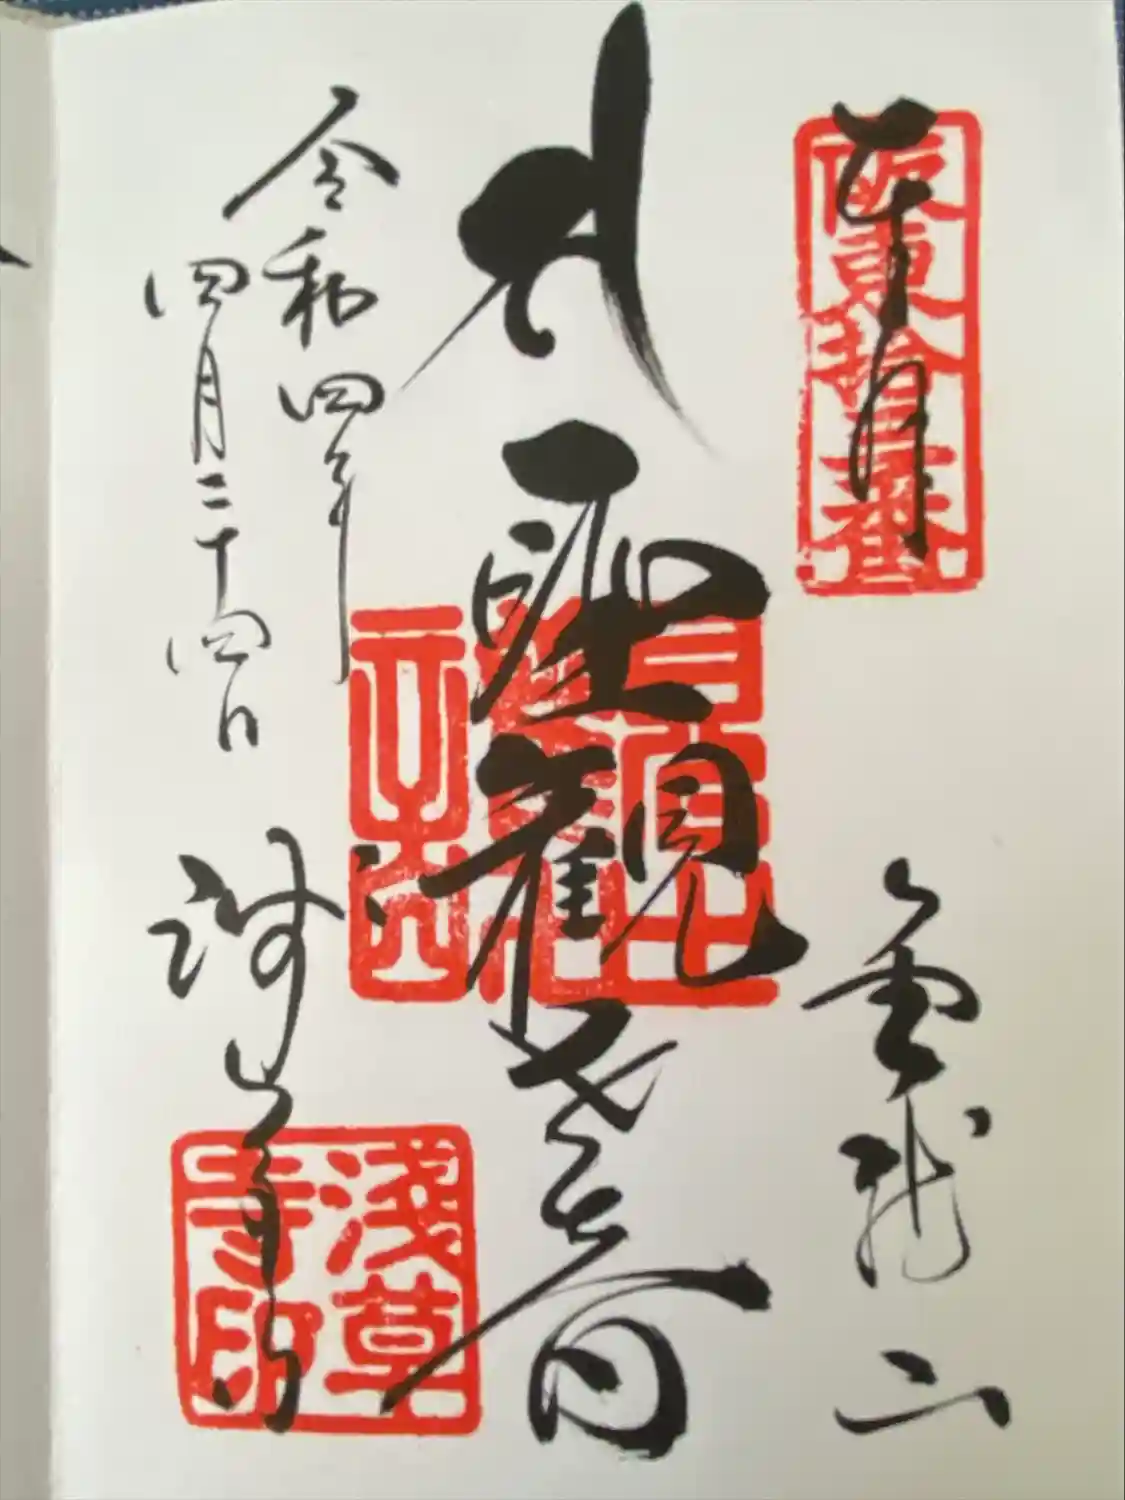 阪東拾三番
奉拝
金龍山
聖観世音
令和四年
四月二十四日
浅草寺
淺草
寺印